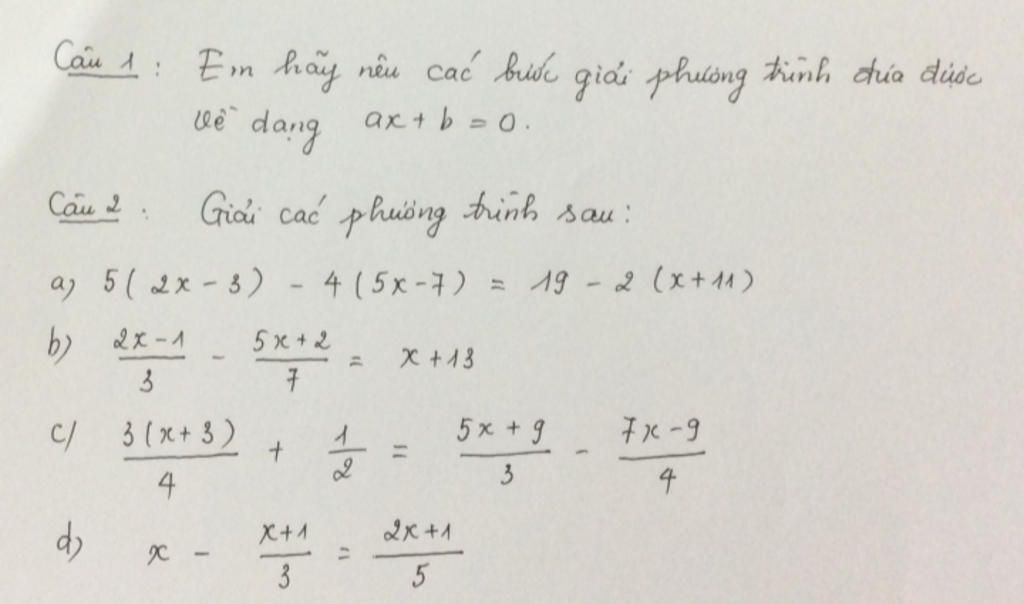 Câu 1 : Em hãy nêu các bước giải phương trình đưa được
về dạng ax + b = 0.
Câu 2 : Giải các phương trình sau :
a) 5( 2x - 3 ) - 4 ( 5x - 7 ) = 19 - 2 ( x + 11 )
b) \frac{2x - 1}{3} - \frac{5x + 2}{7} = x + 13
c/ \frac{3(x + 3)}{4} + \frac{1}{2} = \frac{5x + 9}{3} - \frac{7x - 9}{4}
d) x - \frac{x + 1}{3} = \frac{2x + 1}{5}